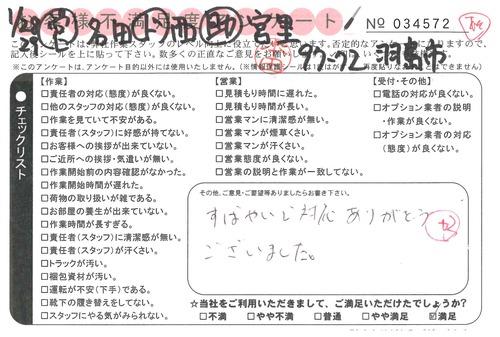 お客様不満足度アンケート
№ 034572
1/28
29
名田(よ)西 宮里
93-22 羽島市
※このアンケートは、アンケート目的以外には使用いたしません。
チェックリスト
【作業】
□責任者の対応(態度)が良くない。
□他のスタッフの対応(態度)が良くない。
□作業を見ていて不安がある。
□責任者(スタッフ)に好感が持てない。
□お客様への挨拶が出来ていない。
□ご近所への挨拶・気遣いが無い。
□作業開始前の内容確認がなかった。
□作業開始時間が遅れた。
□荷物の取り扱いが雑である。
□お部屋の養生が出来ていない。
□作業時間が長すぎる。
□責任者(スタッフ)に清潔感が無い。
□責任者(スタッフ)が汗くさい。
□トラックが汚い。
□梱包資材が汚い。
□運転が不安(下手)である。
□靴下の履き替えをしてない。
□スタッフにやる気がみられない。
【営業】
□見積もり時間に遅れた。
□見積もり時間が長い。
□営業マンに清潔感が無い。
□営業マンが煙草くさい。
□営業マンが汗くさい。
□営業態度が良くない。
□営業の説明と作業が一致してない。
【受付・その他】
□電話の対応が良くない。
□オプション業者の説明
・作業が良くない。
□オプション業者の対応
(態度)が良くない。
その他、ご意見・ご要望等ありましたらお書き下さい。
すばやいご対応ありがとう
ございました。
☆当社をご利用いただきまして、ご満足いただけたでしょうか?
□不満 □やや不満 □普通 □やや満足 ☑満足